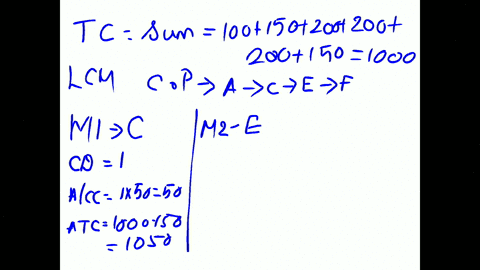 TC = Sum = 100+150+200+200+
200+150=1000
LCM COP → A → C → E → F
M1 → C
CD = 1
A/CC = 1x50=50
ATC=1000+50
= 1050
M2-E